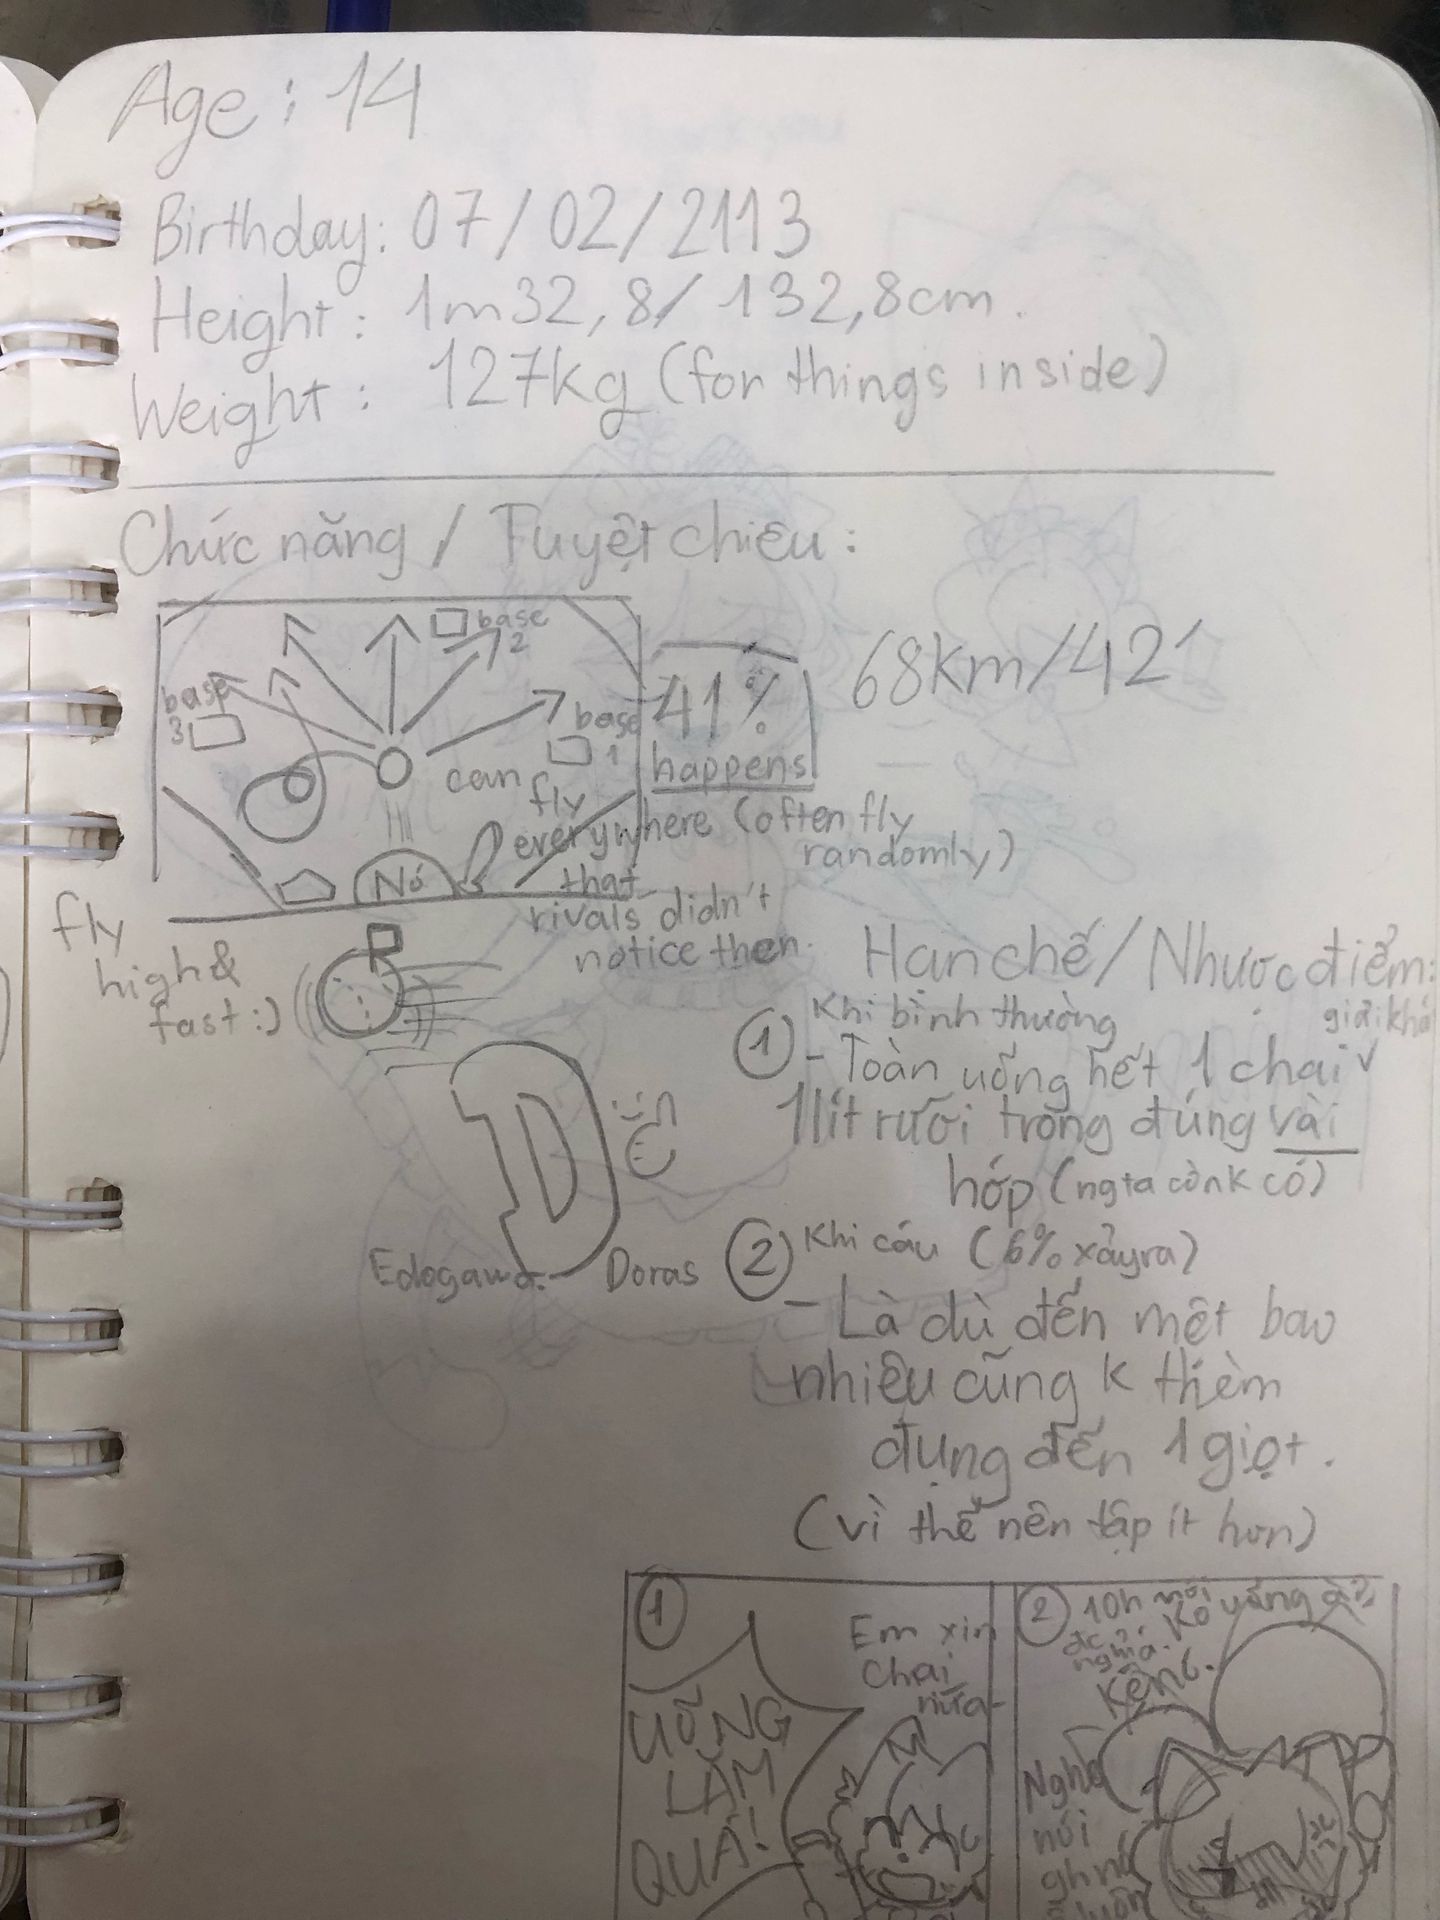 Age: 14
Birthday: 07/02/2113
Height: 1m32,8/132,8cm.
Weight: 127kg (for things inside)
Chức năng / Tuyệt chiêu:
base
2
base
3
base
1
41%
happens
68km/42
can fly
everywhere (often fly
randomly)
that
rivals didn't
notice then.
Nó
fly
high &
fast :)
R
D
Edogawa
Doras
Hạn chế/Nhược điểm:
① Khi bình thường
giải khá
- Toàn uống hết 1 chai v
1 lít rưỡi trong đúng vài
hớp (ngta còn k có)
② Khi cáu (6% xảy ra)
- Là dù đến mệt bao
nhiêu cũng k thèm
đụng đến 1 giọt.
(vì thế nên tập ít hơn)
①
Em xin
chai
nữa-
UỐNG
LẮM
QUÁ!
② 10h mới
đc nghỉ. Ko uống à?
Nghe
nói